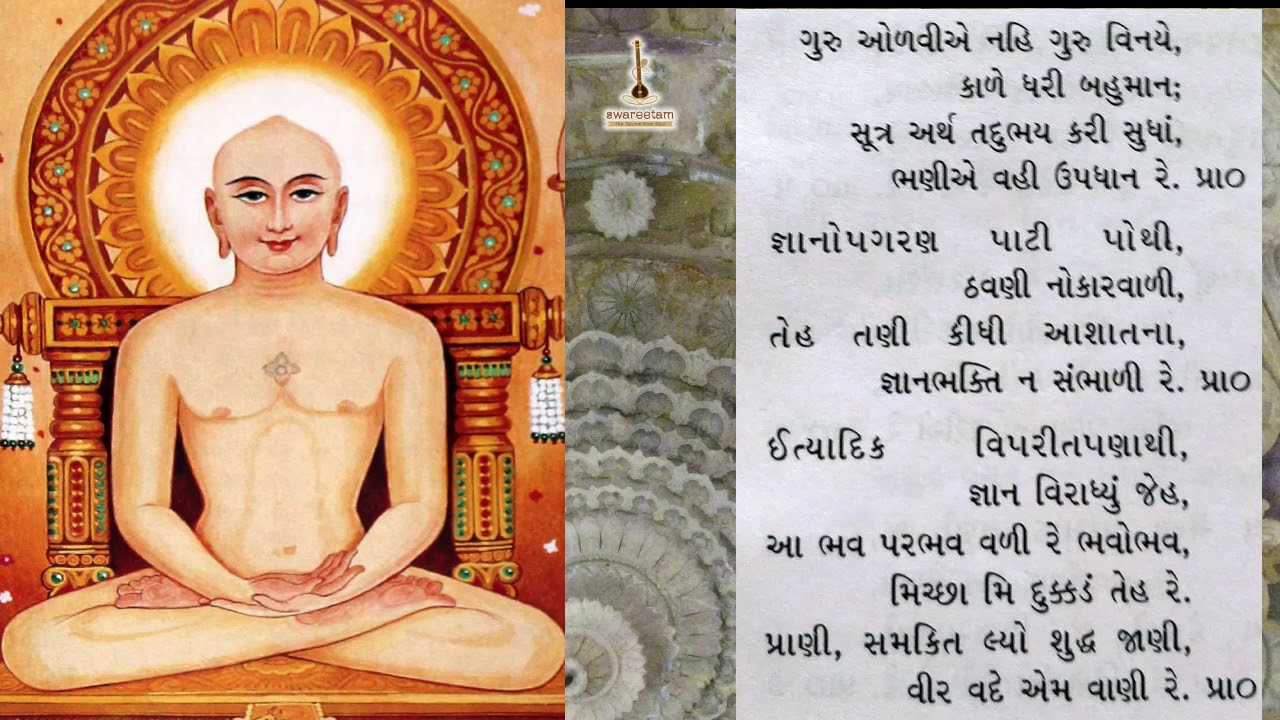 swareetam
ગુરુ ઓળવીએ નહિ ગુરુ વિનયે,
કાળે ધરી બહુમાન;
સૂત્ર અર્થ તદુભય કરી સુધાં,
ભણીએ વહી ઉપધાન રે. પ્રા૦
જ્ઞાનોપગરણ પાટી પોથી,
ઠવણી નોકારવાળી,
તેહ તણી કીધી આશાતના,
જ્ઞાનભક્તિ ન સંભાળી રે. પ્રા૦
ઈત્યાદિક વિપરીતપણાથી,
જ્ઞાન વિરાધ્યું જેહ,
આ ભવ પરભવ વળી રે ભવોભવ,
મિચ્છા મિ દુક્કડં તેહ રે.
પ્રાણી, સમકિત લ્યો શુદ્ધ જાણી,
વીર વદે એમ વાણી રે. પ્રા૦